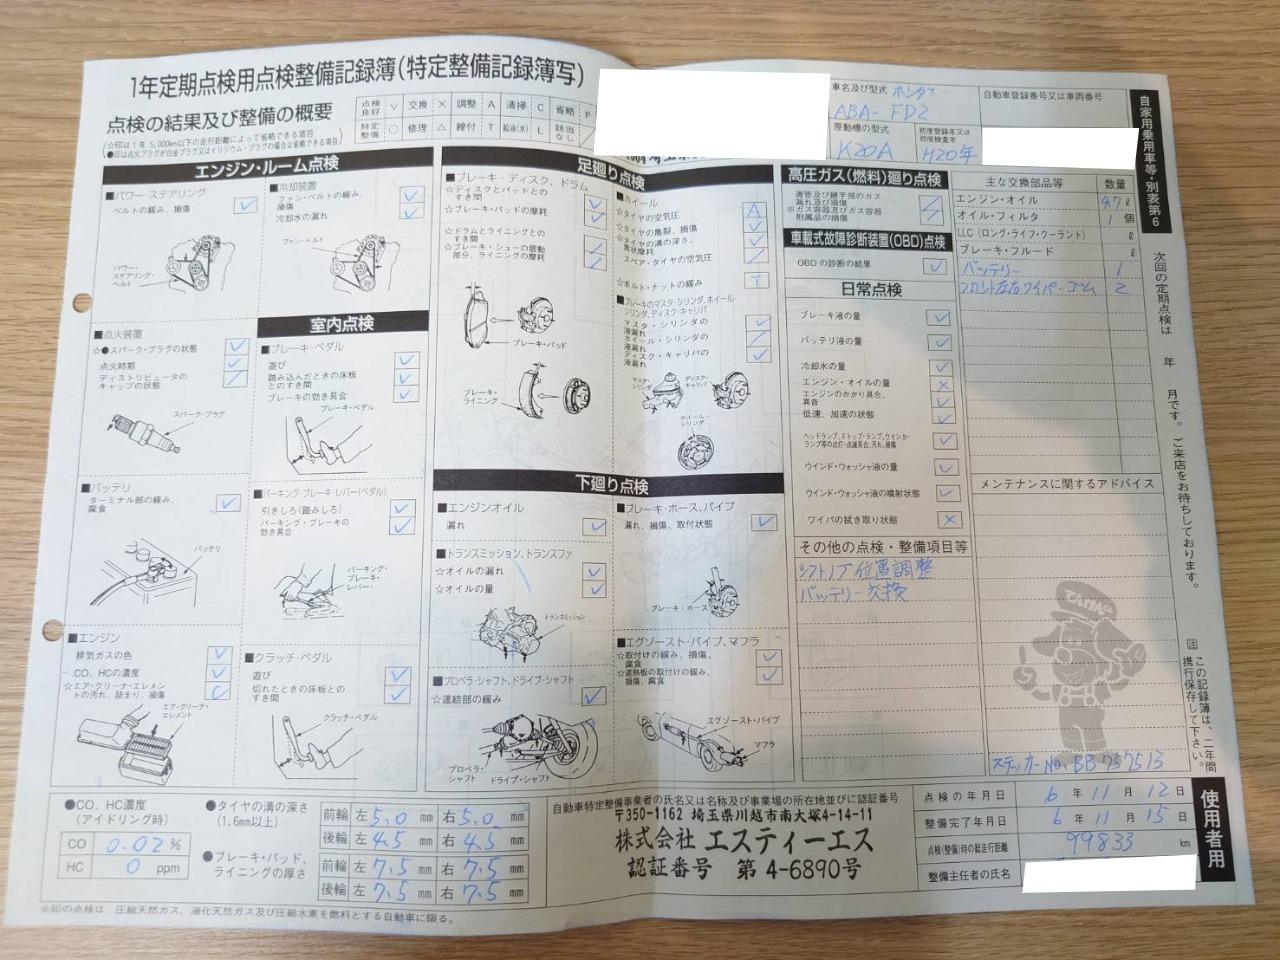 1年定期点検用点検整備記録簿(特定整備記録簿写)
点検の結果及び整備の概要
(☆印は1年 5,000km以下の走行距離によって省略できる項目
●印は点火プラグが白金プラグ又はイリジウム・プラグの場合は省略できる項目)
点検良好 V 交換 × 調整 A 清掃 C 省略 P
特定整備 ○ 修理 △ 締付 T 給油(水) L 該当なし /
車名及び型式 ホンダ
ABA-FD2
自動車登録番号又は車両番号
原動機の型式
K20A
初度登録年又は初度検査年
H20年
自家用乗用車等・別表第6
エンジン・ルーム点検
■パワー・ステアリング
ベルトの緩み、損傷
パワー・ステアリング・ベルト
■冷却装置
ファン・ベルトの緩み、損傷
冷却水の漏れ
ファン・ベルト
■点火装置
☆●スパーク・プラグの状態
点火時期
ディストリビュータのキャップの状態
スパーク・プラグ
■バッテリ
ターミナル部の緩み、腐食
バッテリ
■エンジン
排気ガスの色
CO、HCの濃度
☆エア・クリーナ・エレメントの汚れ、詰まり、損傷 C
エア・クリーナ・エレメント
室内点検
■ブレーキ・ペダル
遊び
踏み込んだときの床板とのすき間
ブレーキの効き具合
ブレーキ・ペダル
■パーキング・ブレーキ・レバー(ペダル)
引きしろ(踏みしろ)
パーキング・ブレーキの効き具合
パーキング・ブレーキ・レバー
■クラッチ・ペダル
遊び
切れたときの床板とのすき間
クラッチ・ペダル
足廻り点検
■ブレーキ・ディスク、ドラム
☆ディスクとパッドとのすき間
☆ブレーキ・パッドの摩耗
☆ドラムとライニングとのすき間
☆ブレーキ・シューの摺動部分、ライニングの摩耗
ブレーキ・パッド
ブレーキ・ライニング
■ホイール
☆タイヤの空気圧 A
☆タイヤの亀裂、損傷
☆タイヤの溝の深さ、異状摩耗
スペア・タイヤの空気圧
☆ボルト・ナットの緩み T
■ブレーキのマスタ・シリンダ、ホイール・シリンダ、ディスク・キャリパ
マスタ・シリンダの液漏れ
ホイール・シリンダの液漏れ
ディスク・キャリパの液漏れ
マスタ・シリンダ
ディスク・キャリパ
ホイール・シリンダ
下廻り点検
■エンジンオイル
漏れ
■トランスミッション、トランスファ
☆オイルの漏れ
☆オイルの量
トランスミッション
■プロペラ・シャフト、ドライブ・シャフト
☆連結部の緩み
プロペラ・シャフト
ドライブ・シャフト
■ブレーキ・ホース、パイプ
漏れ、損傷、取付状態
ブレーキ・ホース
■エグゾースト・パイプ、マフラ
☆取付けの緩み、損傷、腐食
☆遮熱板の取付けの緩み、損傷、腐食
エグゾースト・パイプ
マフラ
高圧ガス(燃料)廻り点検
導管及び継手部のガス漏れ及び損傷
※ガス容器及びガス容器附属品の損傷
車載式故障診断装置(OBD)点検
OBDの診断の結果
日常点検
ブレーキ液の量
バッテリ液の量
冷却水の量
エンジン・オイルの量 ×
エンジンのかかり具合、異音
低速、加速の状態
ヘッドランプ、ストップ・ランプ、ウインカ・ランプ等の点灯・点滅具合、汚れ、損傷
ウインド・ウォッシャ液の量
ウインド・ウォッシャ液の噴射状態
ワイパの拭き取り状態 ×
その他の点検・整備項目等
シフトノブ位置調整
バッテリー交換
主な交換部品等 数量
エンジン・オイル 4.7 ℓ
オイル・フィルタ 1 個
LLC(ロング・ライフ・クーラント) ℓ
ブレーキ・フルード ℓ
バッテリー 1
フロント左右ワイパーゴム 2
メンテナンスに関するアドバイス
てんけんくん
ステッカーNo. BB757513
次回の定期点検は 年 月です。ご来店をお待ちしております。
注 この記録簿は、二年間携行保存して下さい。
●CO、HC濃度
(アイドリング時)
CO 0.02 %
HC 0 ppm
●タイヤの溝の深さ
(1.6mm以上)
前輪 左 5.0 mm 右 5.0 mm
後輪 左 4.5 mm 右 4.5 mm
●ブレーキ・パッド、ライニングの厚さ
前輪 左 7.5 mm 右 7.5 mm
後輪 左 7.5 mm 右 7.5 mm
自動車特定整備事業者の氏名又は名称及び事業場の所在地並びに認証番号
〒350-1162 埼玉県川越市南大塚4-14-11
株式会社 エスティーエス
認証番号 第 4-6890号
点検の年月日 6年 11月 12日
整備完了年月日 6年 11月 15日
点検(整備)時の総走行距離 99833 km
整備主任者の氏名
使用者用
※印の点検は、圧縮天然ガス、液化天然ガス及び圧縮水素を燃料とする自動車に限る。